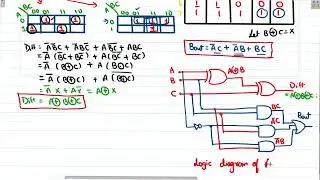 A BC 00 01 11 10
A BC 00 01 11 10
0
1 1 0 0
1 1 1 1
Let B⊕C = X
Diff = A̅B̅C + A̅BC̅ + AB̅C̅ + ABC
= A̅ (B̅C + BC̅) + A (B̅C̅ + BC)
= A̅ (B⊕C) + A (B⊙C)
= A̅ (B⊕C) + A (B⊕C)‾
= A̅X + AX̅ = A⊕X
Diff = A⊕B⊕C
Bout = A̅C + A̅B + BC
A
B
C
A⊕B
Diff
(=A⊕B⊕C)
BC
A̅C
A̅B
Bout
Logic diagram of f